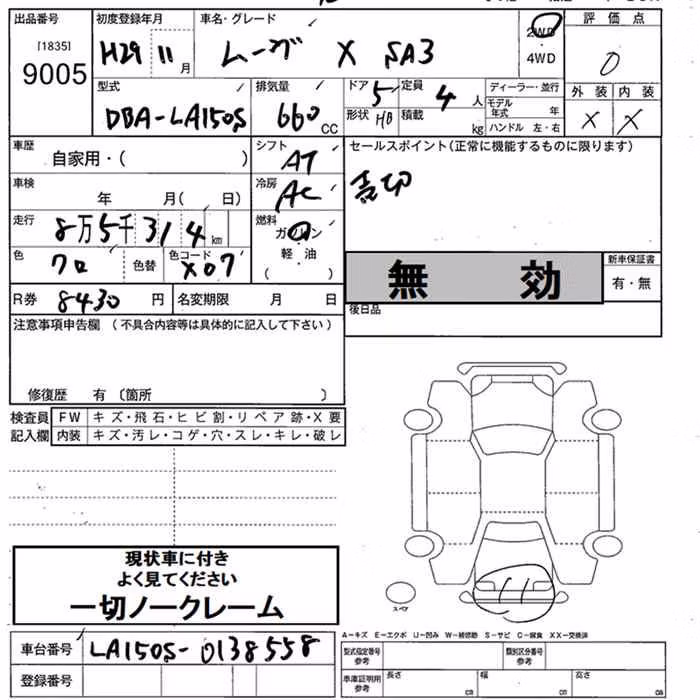 出品番号 初度登録年月 車名・グレード 評価点
[1835] H29 11月 ムーヴ X SA3 2WD・4WD 0
9005
型式 排気量 ドア 定員 ディーラー・並行 外装 内装
DBA-LA150S 660CC 5 4人 モデル年式 年 X X
形状 HB 積載 kg ハンドル 左・右
車歴 自家用・( ) シフト AT セールスポイント(正常に機能するものに限ります)
車検 年 月( 日) 冷房 AC
走行 8万5千314km 燃料 ガソリン・軽油 ( )
色 クロ 色替 色コード X07 無効 新車保証書
有・無
R券 8430円 名変期限 月 日 後日品
注意事項申告欄 (不具合内容等は具体的に記入して下さい)
修復歴 有 〔箇所 〕
検査員 FW キズ・飛石・ヒビ割・リペア跡・X要
記入欄 内装 キズ・汚レ・コゲ・穴・スレ・キレ・破レ
現状車に付き
よく見てください
一切ノークレーム
スペア
A-キズ E-エクボ U-凹み W-補修跡 S-サビ C-腐食 XX-交換済
車台番号 LA150S-0138558 型式指定番号 参考 類別区分番号 参考
登録番号 車庫証明用 参考 長さ cm 幅 cm 高さ cm